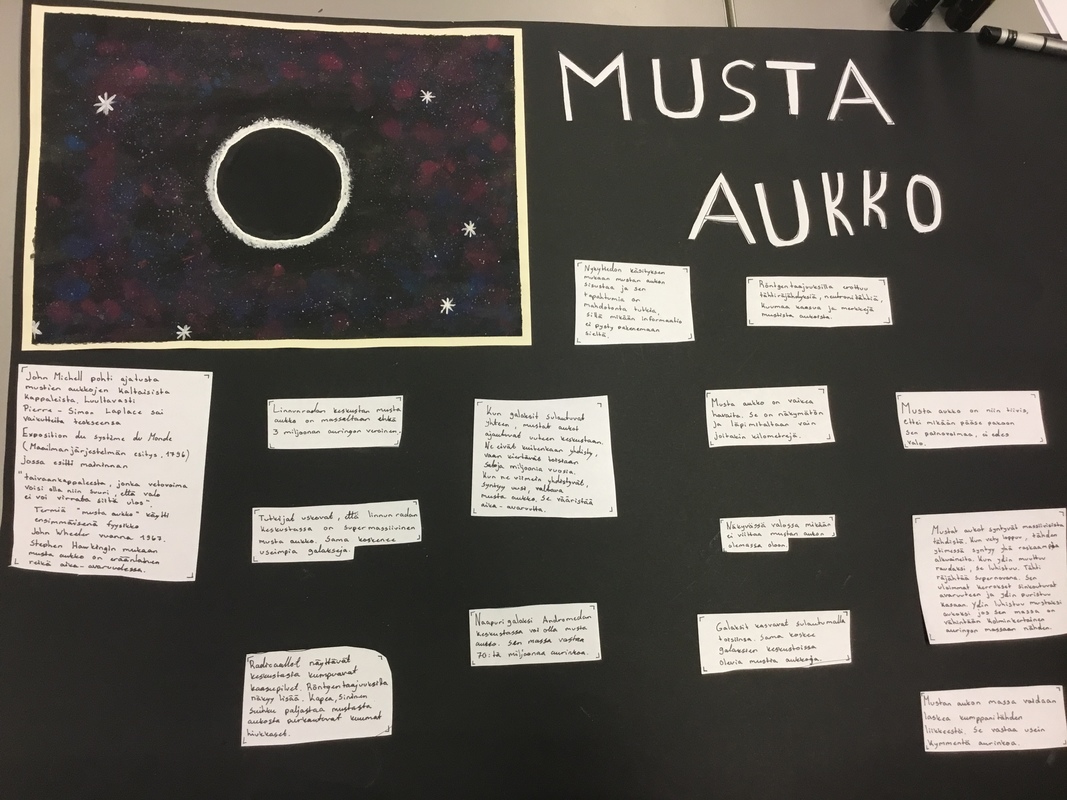 MUSTA
AUKKO
Nykytiedon käsityksen
mukaan mustan aukon
sisustaa ja sen
tapahtumia on
mahdotonta tutkia,
sillä mikään informaatio
ei pysty pakenemaan
sieltä.
Röntgentaajuuksilla erottuu
tähtiräjähdyksiä, neutronitähtiä,
kuumaa kaasua ja merkkejä
mustista aukoista.
John Michell pohti ajatusta
mustien aukkojen kaltaisista
kappaleista. Luultavasti
Pierre-Simon Laplace sai
vaikutteita teokseensa
Exposition du système du Monde
(Maailmanjärjestelmän esitys, 1796)
Jossa esitti maininnan
"taivaankappaleesta, jonka vetovoima
voisi olla niin suuri, että valo
ei voi virrata siitä ulos".
Termiä "musta aukko" käytti
ensimmäisenä fyysikko
John Wheeler vuonna 1967.
Stephen Hawkingin mukaan
musta aukko on eräänlainen
reikä aika-avaruudessa.
Linnunradan keskustan musta
aukko on massaltaan ehkä
3 miljoonan auringon veroinen.
Tutkijat uskovat, että linnunradan
keskustassa on supermassiivinen
musta aukko. Sama koskenee
useimpia galakseja.
Radioaallot näyttävät
keskustasta kumpuavat
kaasupilvet. Röntgentaajuuksilla
näkyy lisää. Kapea, sininen
suihku paljastaa mustasta
aukosta purkautuvat kuumat
hiukkaset.
Kun galaksit sulautuvat
yhteen, mustat aukot
ajautuvat uuteen keskustaan.
Ne eivät kuitenkaan yhdisty,
vaan kiertävät toistaan
satoja miljoonia vuosia.
Kun ne viimein yhdistyvät,
syntyy uusi, valtava
musta aukko. Se vääristää
aika-avaruutta.
Naapurigalaksi Andromedan
keskustassa voi olla musta
aukko. Sen massa vastaa
70:tä miljoonaa aurinkoa.
Musta aukko on vaikea
havaita. Se on näkymätön
ja läpimitaltaan vain
joitakin kilometrejä.
Näkyvässä valossa mikään
ei viittaa mustan aukon
olemassa oloon.
Galaksit kasvavat sulautumalla
toisiinsa. Sama koskee
galaksien keskustoissa
olevia mustia aukkoja.
Musta aukko on niin tiivis,
ettei mikään pääse pakoon
sen painovoimaa, ei edes
valo.
Mustat aukot syntyvät massiivisista
tähdistä. Kun vety loppuu, tähden
ytimessä syntyy yhä raskaampia
alkuaineita. Kun ydin muuttuu
raudaksi, se luhistuu. Tähti
räjähtää supernovana. Sen
uloimmat kerrokset sinkoutuvat
avaruuteen ja ydin puristuu
kasaan. Ydin luhistuu mustaksi
aukoksi jos sen massa on
vähintään kolminkertainen
auringon massaan nähden.
Mustan aukon massa voidaan
laskea kumppanitähden
liikkeestä. Se vastaa usein
kymmentä aurinkoa.